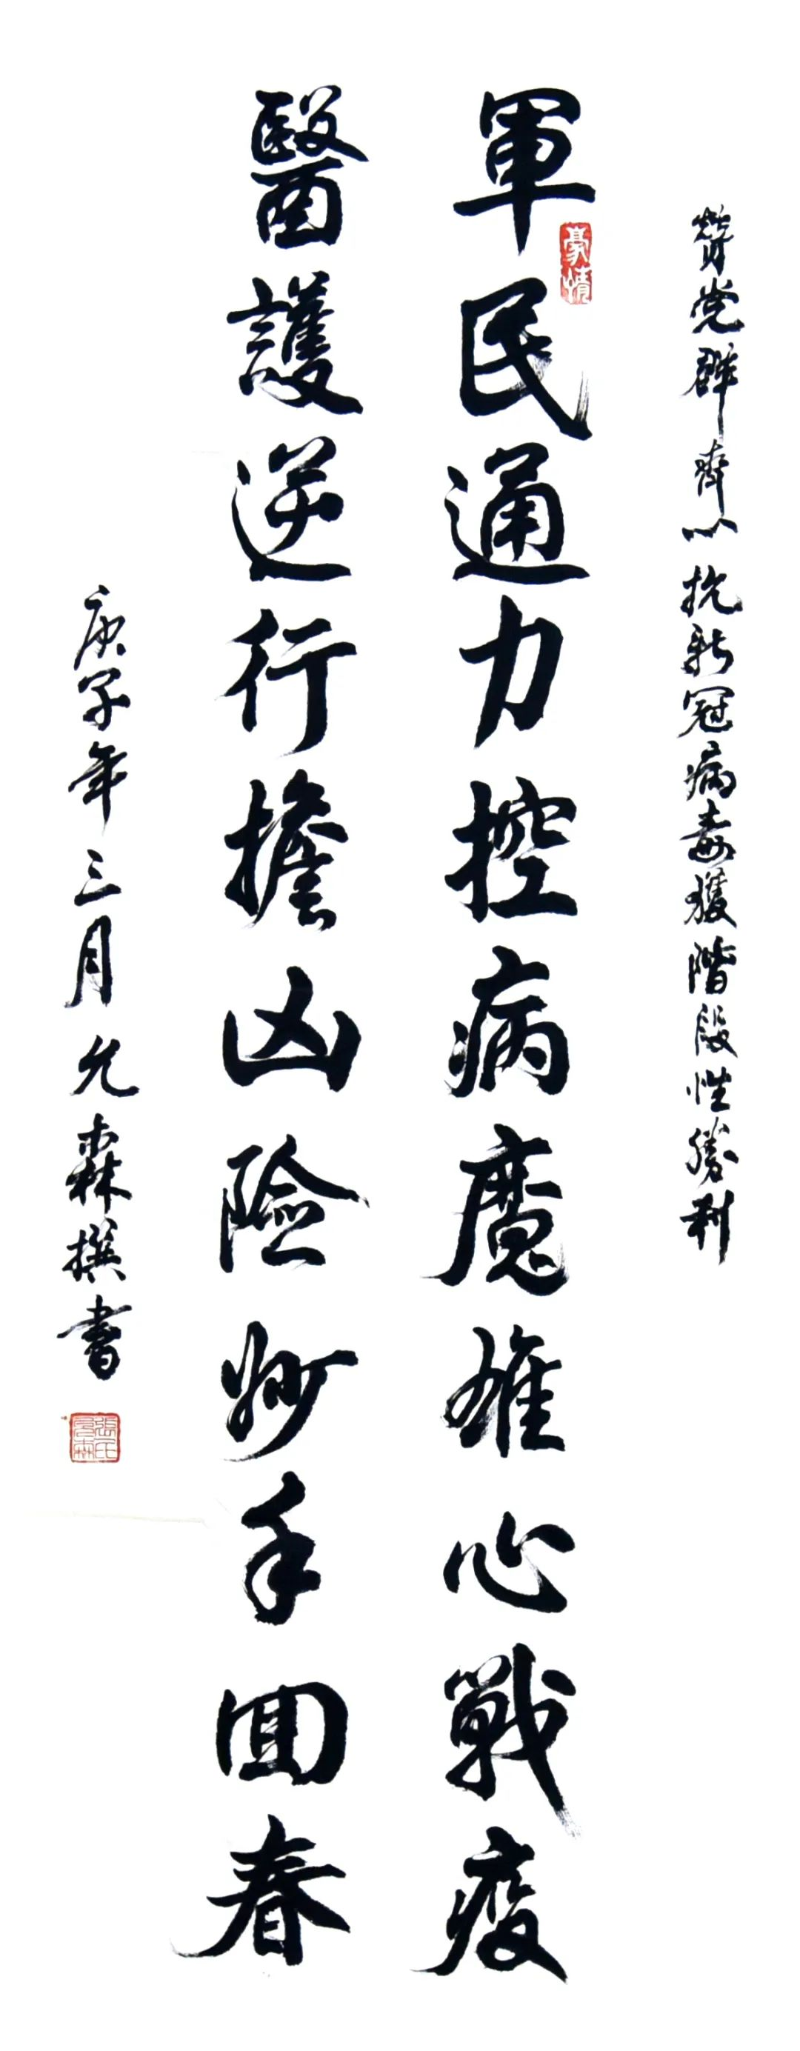 贊党群齊心抗新冠病毒獲階段性勝利
軍民通力控病魔雄心戰疫
醫護逆行擔凶險妙手回春
庚子年三月允森撰書
豪情